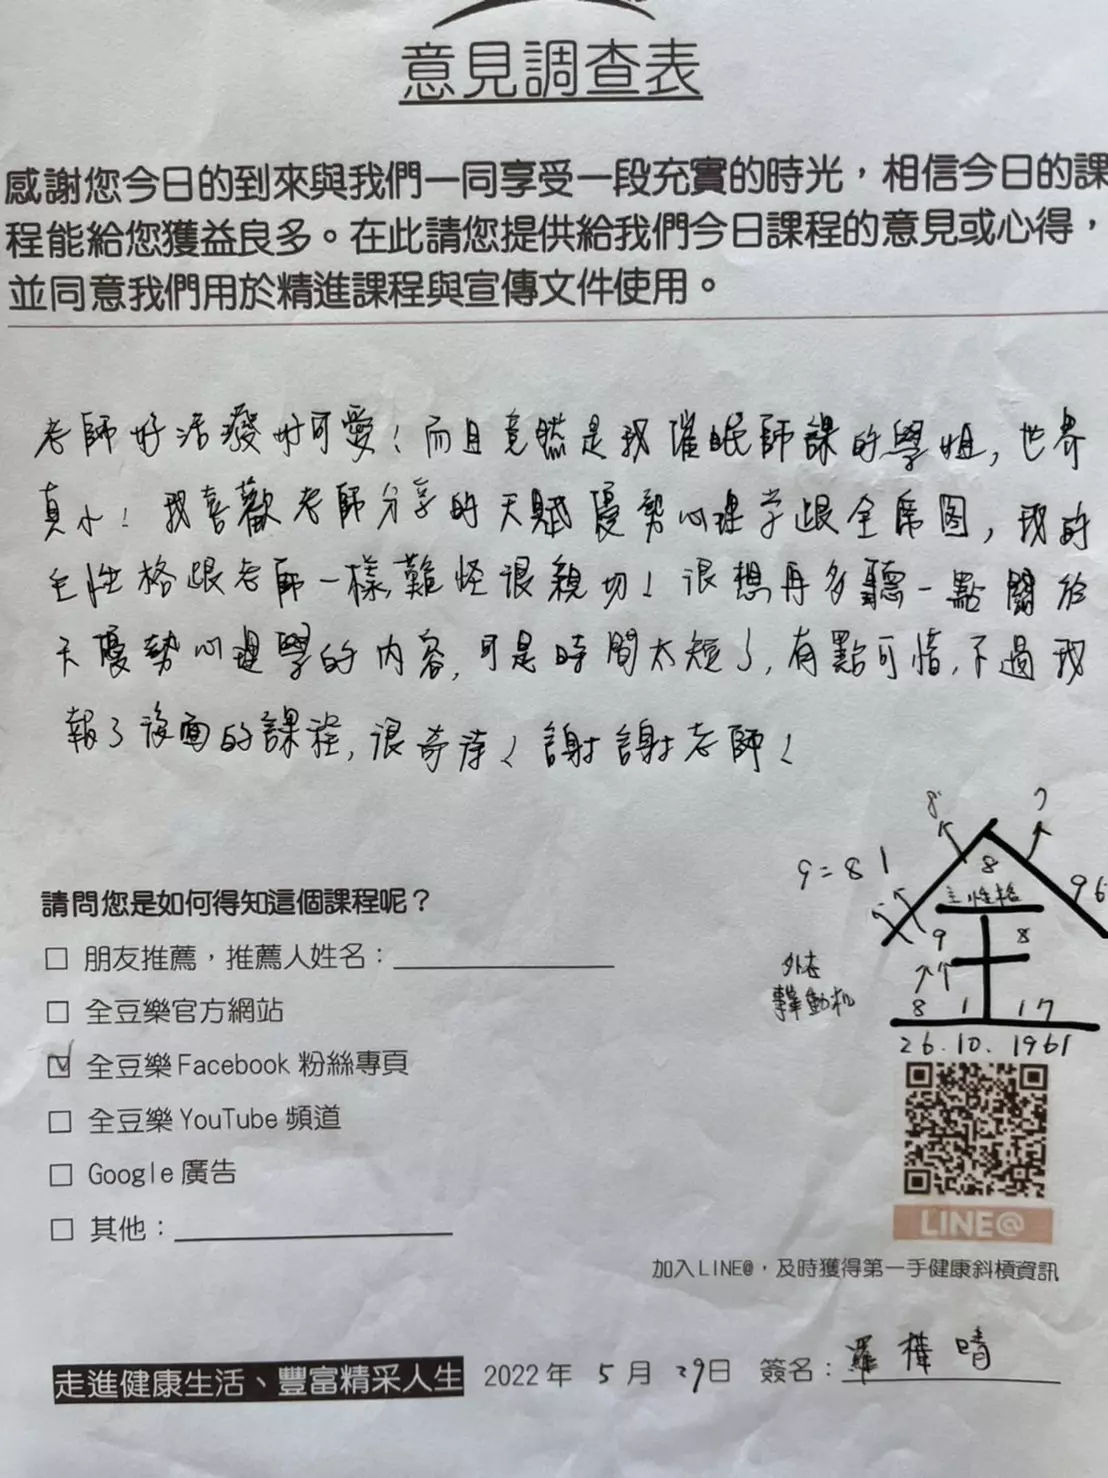 意見調查表
感謝您今日的到來與我們一同享受一段充實的時光，相信今日的課
程能給您獲益良多。在此請您提供給我們今日課程的意見或心得，
並同意我們用於精進課程與宣傳文件使用。
老師好活潑好可愛！而且竟然是我催眠師課的學姐，世界
真小！我喜歡老師分享的天賦優勢心理学跟全席圖，我的
主性格跟老師一樣難怪很親切！很想再多聽一點關於
天優勢心理學的內容，可是時間太短了，有點可惜，不過我
報了後面的課程，很奇待！謝謝老師！
8 7
9=81 8 96
主性格
9 8
外在
轉動机
8 1 17
26.10.1961
請問您是如何得知這個課程呢？
□ 朋友推薦，推薦人姓名：
□ 全豆樂官方網站
☑ 全豆樂Facebook 粉絲專頁
□ 全豆樂YouTube 頻道
□ Google廣告
□ 其他：
LINE@
加入LINE@，及時獲得第一手健康斜槓資訊
走進健康生活、豐富精采人生 2022年 5月 29日 簽名：羅樺晴